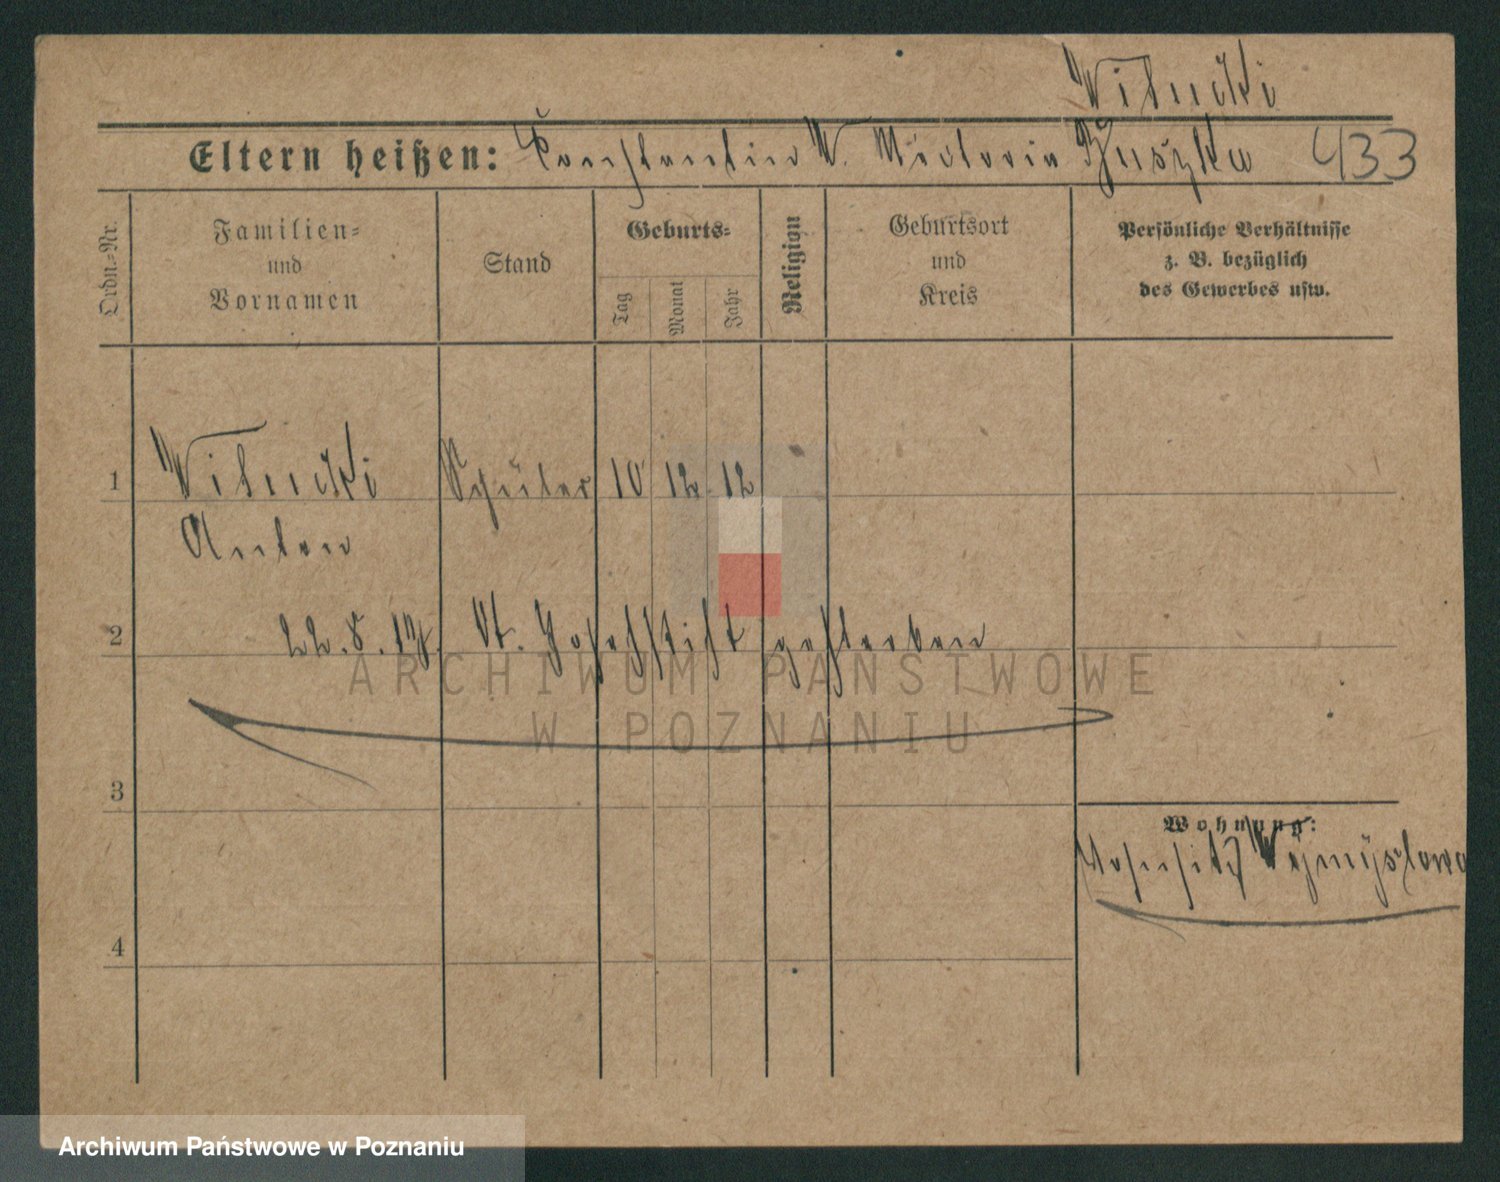 Witucki
Eltern heißen: Constantin W. Victoria Ruszka 433
Ordn.-Nr.
Familien-
und
Vornamen
Stand
Geburts-
Tag
Monat
Jahr
Religion
Geburtsort
und
Kreis
Persönliche Verhältnisse
z. B. bezüglich
des Gewerbes usw.
1 Witucki Schüler 10 12. 12
Anton
2 22. 8. 17. St. Josephstift gestorben
ARCHIWUM PAŃSTWOWE
W POZNANIU
3
Wohnung:
4
Archiwum Państwowe w Poznaniu